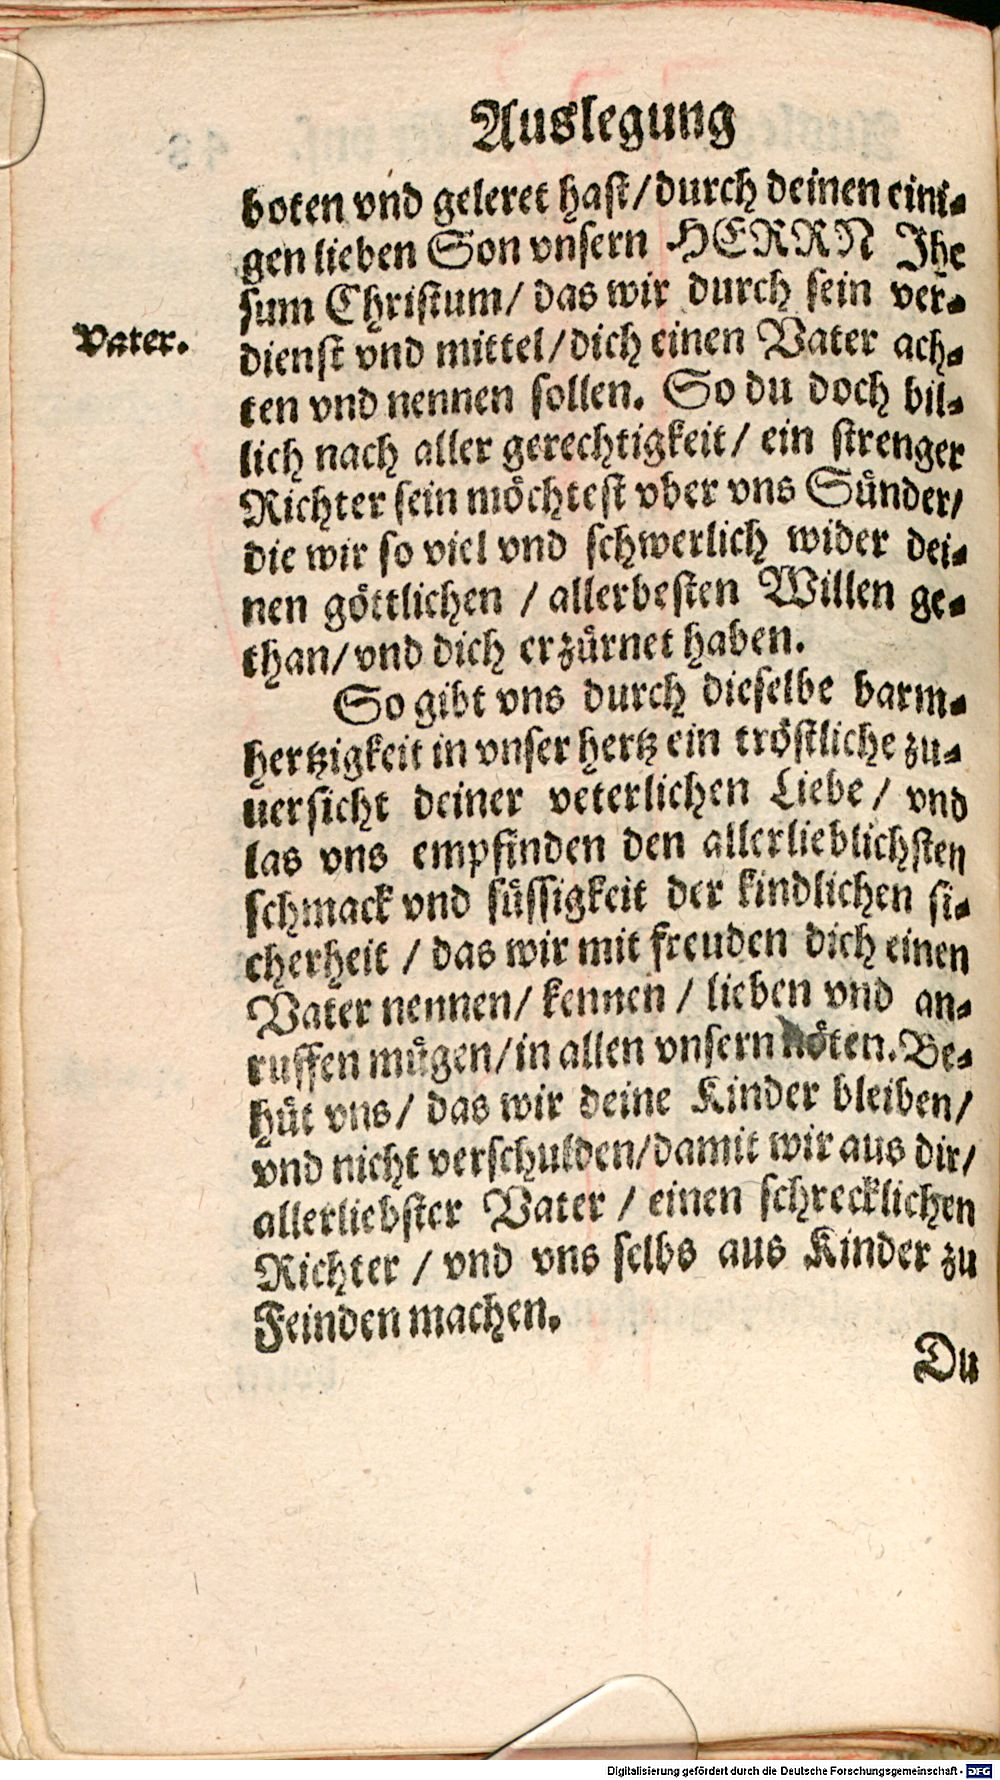 Auslegung
boten vnd geleret hast/durch deinen eini-
gen lieben Son vnsern HERRN Jhe
sum Christum/ das wir durch sein ver-
Vater.
dienst vnd mittel/dich einen Vater ach-
ten vnd nennen sollen. So du doch bil-
lich nach aller gerechtigkeit/ ein strenger
Richter sein möchtest vber vns Sünder/
die wir so viel vnd schwerlich wider dei-
nen göttlichen / allerbesten Willen ge-
than/vnd dich erzürnet haben.
So gibt vns durch dieselbe barm-
hertzigkeit in vnser hertz ein tröstliche zu-
uersicht deiner veterlichen Liebe / vnd
las vns empfinden den allerlieblichsten
schmack vnd süssigkeit der kindlichen si-
cherheit / das wir mit freuden dich einen
Vater nennen/ kennen / lieben vnd an-
ruffen mügen/in allen vnsern nöten. Be-
hüt vns/ das wir deine Kinder bleiben/
vnd nicht verschulden/damit wir aus dir/
allerliebster Vater / einen schrecklichen
Richter / vnd vns selbs aus Kinder zu
Feinden machen.
Du
Digitalisierung gefördert durch die Deutsche Forschungsgemeinschaft - DFG